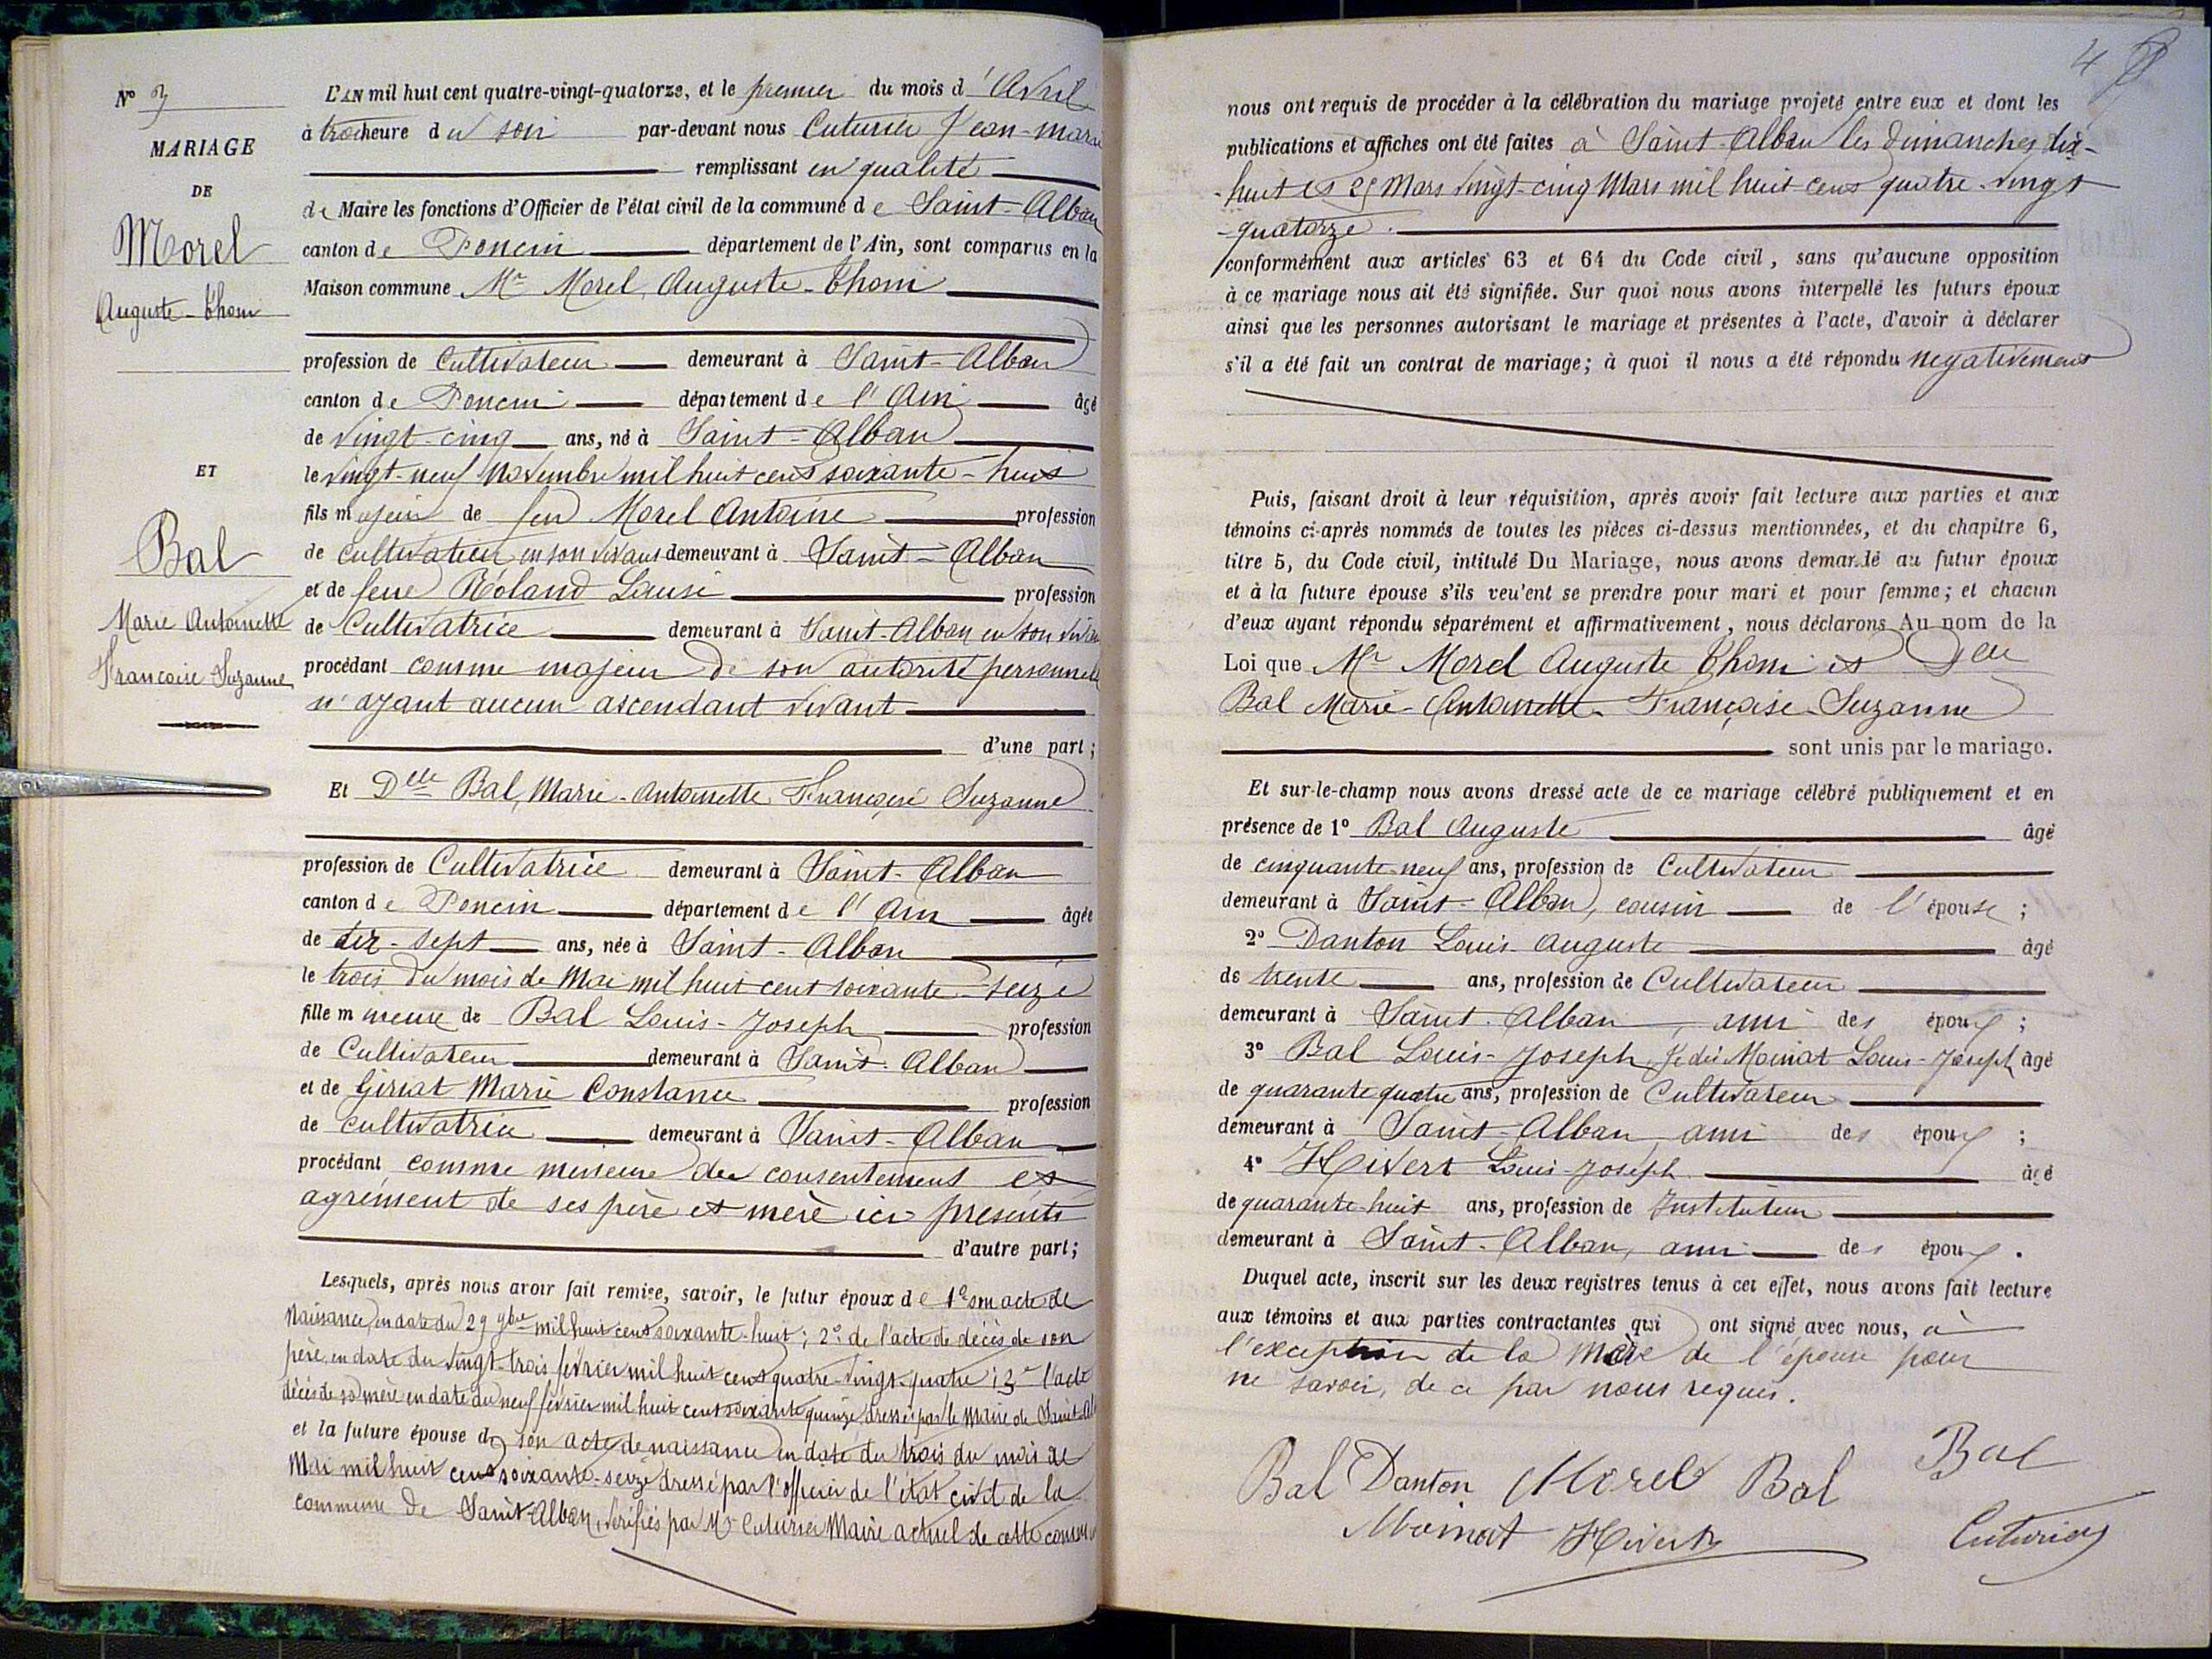 Nº 3
MARIAGE
DE
Morel
Auguste-Thomi
ET
Bal
Marie Antoinette
Françoise Suzanne
L'AN mil huit cent quatre-vingt-quatorze, et le premier du mois d'Avril
à trois heure du soir par-devant nous Cuturier Jean-Marie
remplissant en qualité
de Maire les fonctions d'Officier de l'état civil de la commune de Saint-Alban
canton de Poncin département de l'Ain, sont comparus en la
Maison commune Mr Morel, Auguste-Thomi
profession de Cultivateur demeurant à Saint-Alban
canton de Poncin département de l'Ain âgé
de vingt-cinq ans, né à Saint-Alban
le vingt-neuf Novembre mil huit cent soixante-huit
fils majeur de feu Morel Antoine profession
de cultivateur en son vivant demeurant à Saint-Alban
et de feue Roland Louise profession
de Cultivatrice demeurant à Saint-Alban en son vivant
procédant comme majeur de son autorité personnelle
n'ayant aucun ascendant vivant
d'une part;
Et Delle Bal, Marie-Antoinette Françoise Suzanne
profession de Cultivatrice demeurant à Saint-Alban
canton de Poncin département de l'Ain âgée
de dix-sept ans, née à Saint-Alban
le trois du mois de Mai mil huit cent soixante-seize
fille mineure de Bal Louis-Joseph profession
de Cultivateur demeurant à Saint-Alban
et de Girriat Marie Constance profession
de cultivatrice demeurant à Saint-Alban
procédant comme mineure du consentement et
agrément de ses père et mère ici présents
d'autre part;
Lesquels, après nous avoir fait remise, savoir, le futur époux de 1º son acte de
Naissance, en date du 29 9bre mil huit cent soixante-huit; 2º de l'acte de décès de son
père, en date du vingt-trois février mil huit cent quatre-vingt-quatre; 3º l'acte
décès de sa mère en date du neuf février mil huit cent soixante quinze, dressés par le Maire de Saint-Alb
et la future épouse de son acte de naissance en date du trois du mois de
Mai mil huit cent soixante-seize dressé par l'officier de l'état civil de la
commune de Saint-Alban, vérifiés par Mr Cuturier Maire actuel de cette commune
4
nous ont requis de procéder à la célébration du mariage projeté entre eux et dont les
publications et affiches ont été faites à Saint-Alban les dimanches dix-
huit et 25 Mars vingt-cinq Mars mil huit cent quatre-vingt
-quatorze.
conformément aux articles 63 et 64 du Code civil, sans qu'aucune opposition
à ce mariage nous ait été signifiée. Sur quoi nous avons interpellé les futurs époux
ainsi que les personnes autorisant le mariage et présentes à l'acte, d'avoir à déclarer
s'il a été fait un contrat de mariage; à quoi il nous a été répondu négativement
Puis, faisant droit à leur réquisition, après avoir fait lecture aux parties et aux
témoins ci-après nommés de toutes les pièces ci-dessus mentionnées, et du chapitre 6,
titre 5, du Code civil, intitulé Du Mariage, nous avons demandé au futur époux
et à la future épouse s'ils veulent se prendre pour mari et pour femme; et chacun
d'eux ayant répondu séparément et affirmativement, nous déclarons Au nom de la
Loi que Mr Morel Auguste Thomi et Delle
Bal Marie-Antoinette Françoise-Suzanne
sont unis par le mariage.
Et sur-le-champ nous avons dressé acte de ce mariage célébré publiquement et en
présence de 1º Bal Auguste âgé
de cinquante-neuf ans, profession de Cultivateur
demeurant à Saint-Alban, cousin de l'épouse;
2º Danton Louis-Auguste âgé
de trente ans, profession de Cultivateur
demeurant à Saint-Alban, ami des époux;
3º Bal Louis-Joseph, Je dis Moinat Louis-Joseph âgé
de quarante quatre ans, profession de Cultivateur
demeurant à Saint-Alban, ami des époux;
4º Hivert Louis-Joseph âgé
de quarante-huit ans, profession de Instituteur
demeurant à Saint-Alban, ami des époux.
Duquel acte, inscrit sur les deux registres tenus à cet effet, nous avons fait lecture
aux témoins et aux parties contractantes qui ont signé avec nous, à
l'exception de la Mère de l'épouse pour
ne savoir, de ce par nous requis.
Bal Danton Morel Bal Bal
Moinat Hivert Cuturier